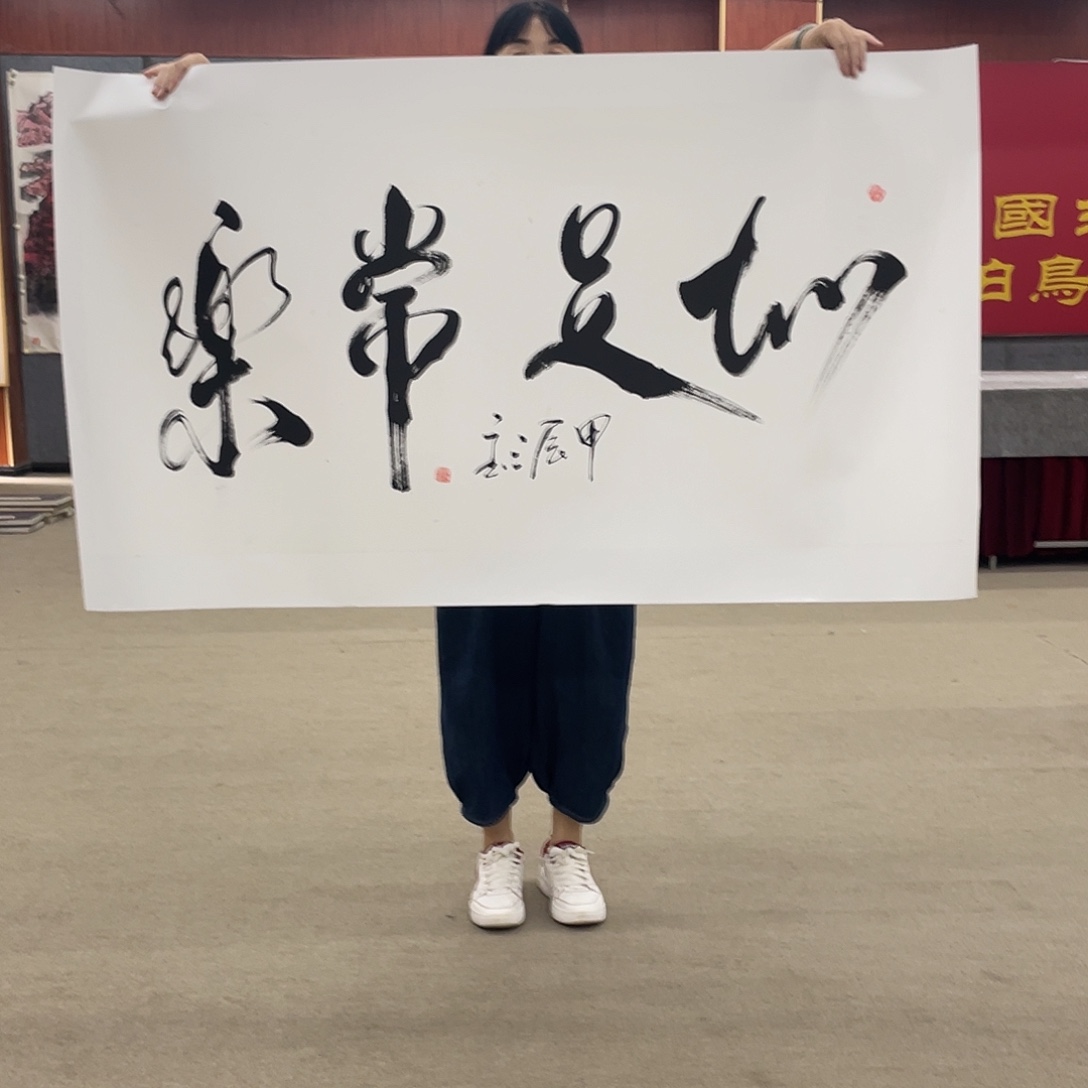 知足常樂
甲辰三
國
白鳥